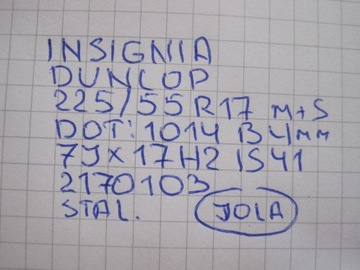 INSIGNIA
DUNLOP
225/55 R17 M+S
DOT: 1014 B4mm
7Jx17H2 IS41
2170103
STAL. JOLA